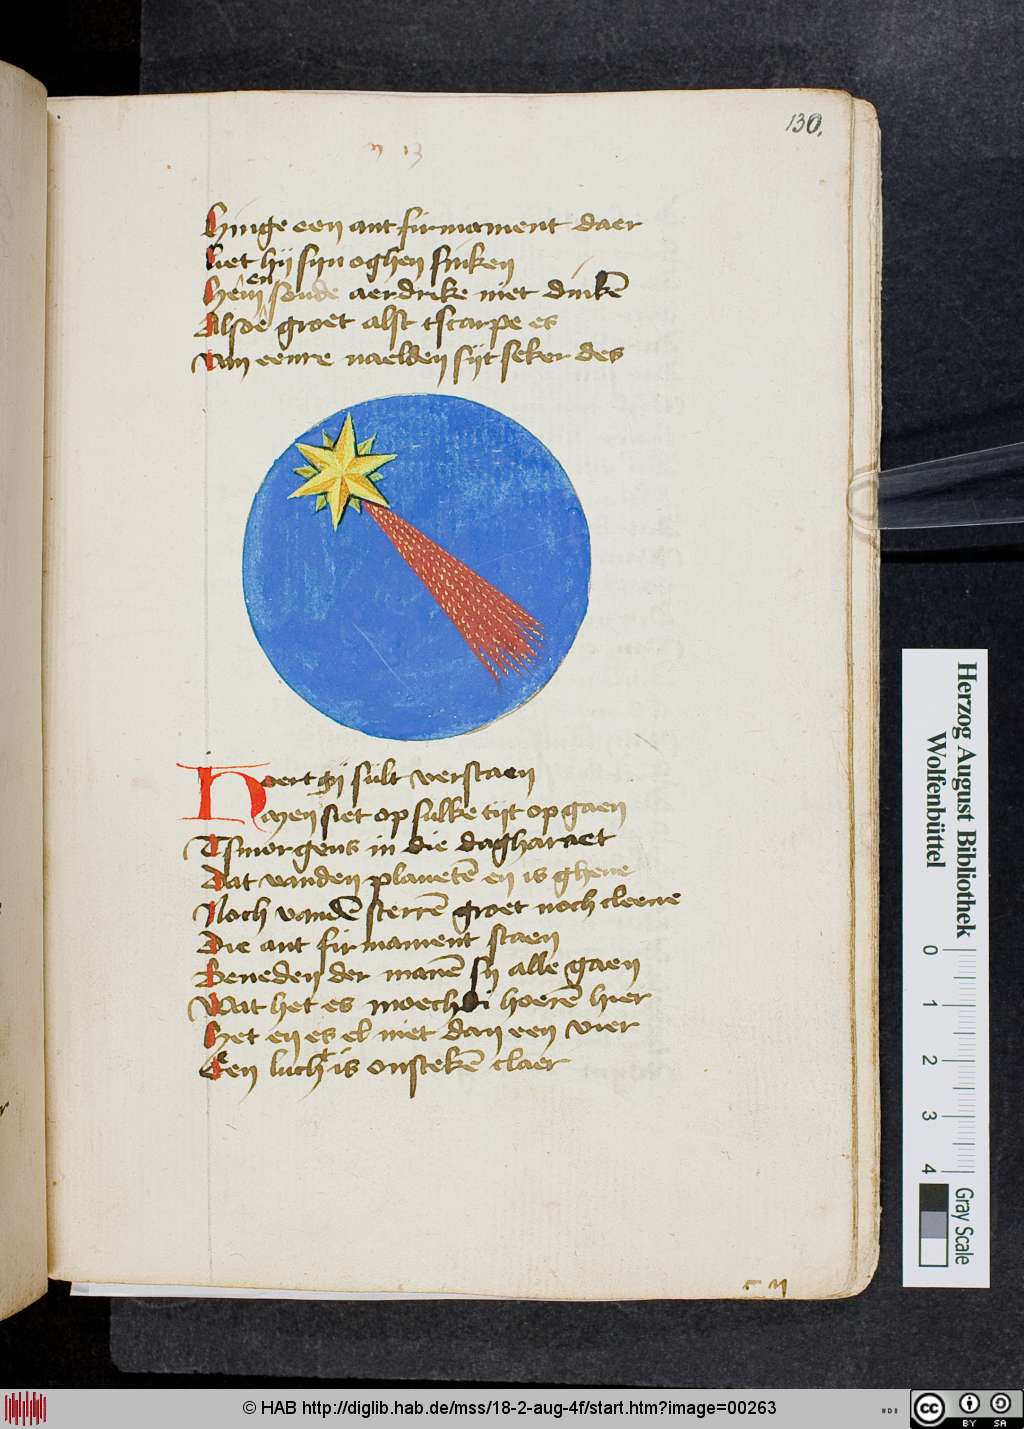 130.
Hinge een ant firmament daer
Liet hij sijn oghen sinken
Hem en soude aerdrike niet dinkē
Alsoe groet alst tscarpe es
Van eenre naelden sijt seker des
Hoert gij sült verstaen
Men siet op sulke tijt op gaen
Tsmorgens in die dagharaet
Dat vanden planetē en is ghene
Noch vandē sterrē groet noch cleene
Die ant firmament staen
Beneden der manē sy alle gaen
Wat het es moechdi hoerē hier
Het en es el niet dan een vier
Een lucht is onstekē claer
Herzog August Bibliothek
Wolfenbüttel
0 1 2 3 4
Gray Scale
© HAB http://diglib.hab.de/mss/18-2-aug-4f/start.htm?image=00263
cc BY SA